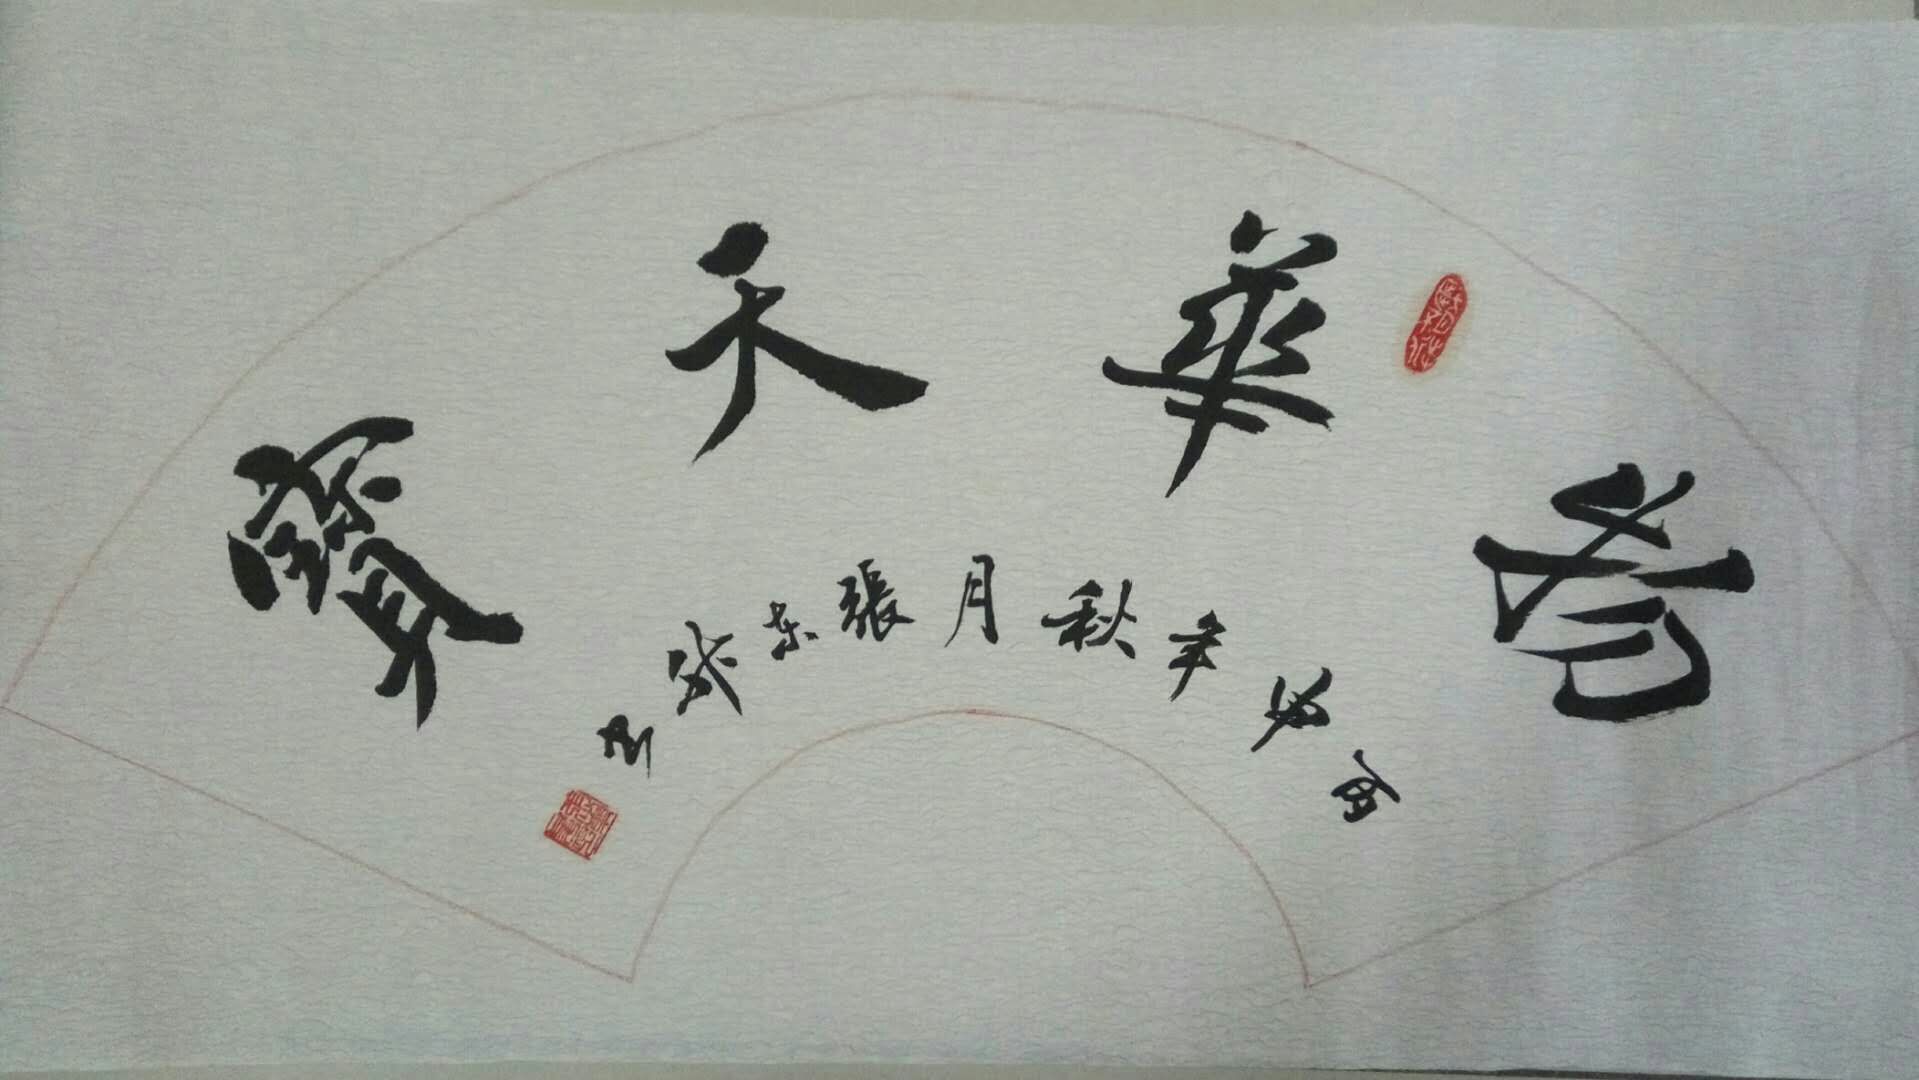 物華天寶
丙申年秋月張東成書